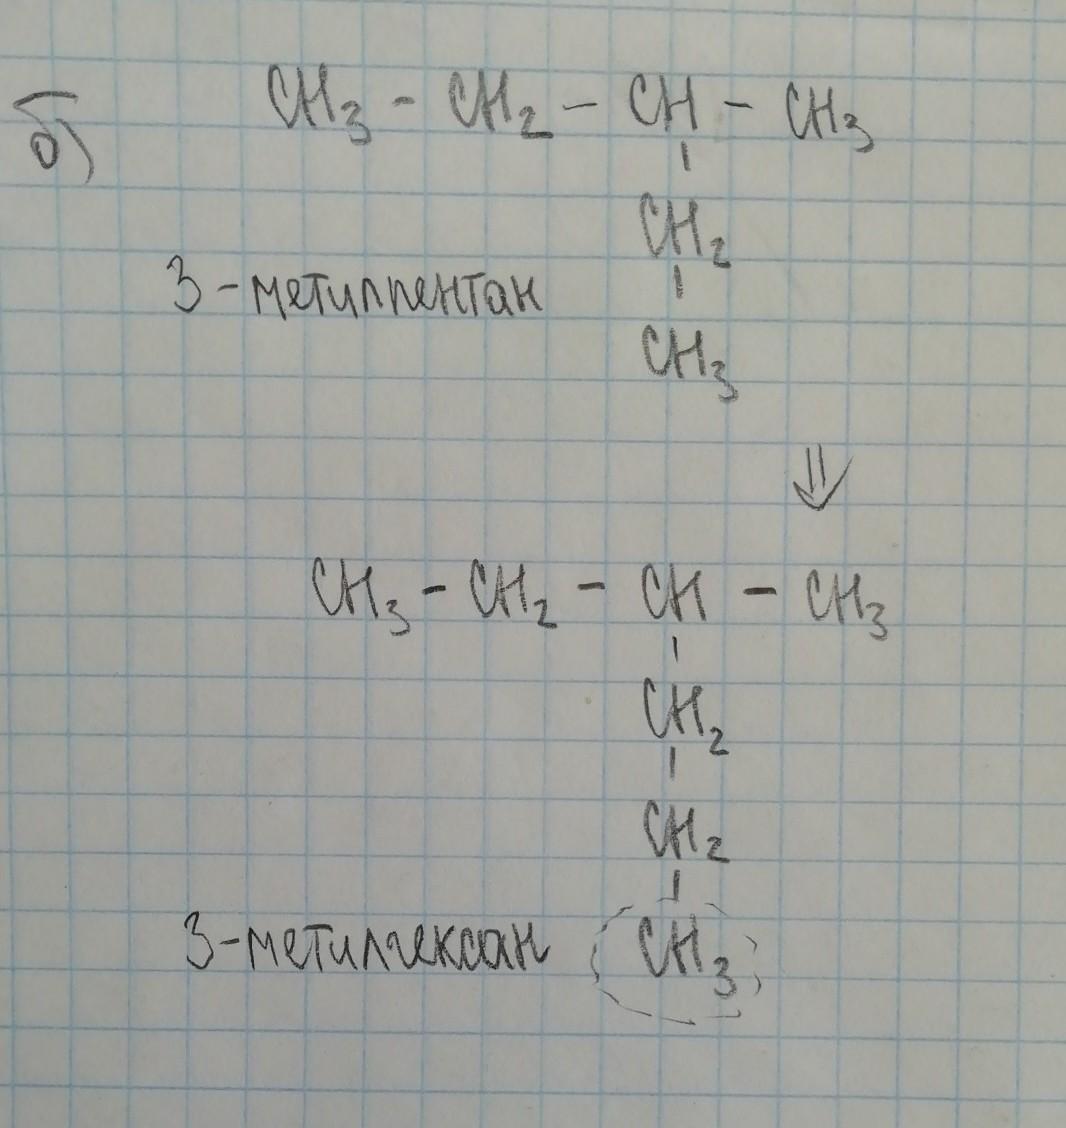 б) CH₃ - CH₂ - CH - CH₃
CH₂
3-метилпентан
CH₃
CH₃ - CH₂ - CH - CH₃
CH₂
CH₂
3-метилгексан CH₃